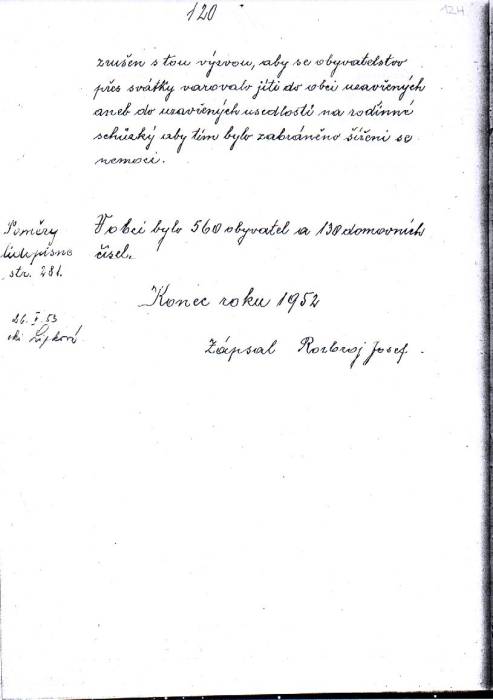 120
124
zrušen s tou výzvou, aby se obyvatelstvo
přes svátky varovalo jíti do obcí uzavřených
aneb do uzavřených usedlostí na rodinné
schůzky aby tím bylo zabráněno šíření se
nemoci.
Poměry
lidopisné
str. 281.
V obci bylo 560 obyvatel a 138 domovních
čísel.
Konec roku 1952
26. I. 53
Zápsal Rozbroj Josef.